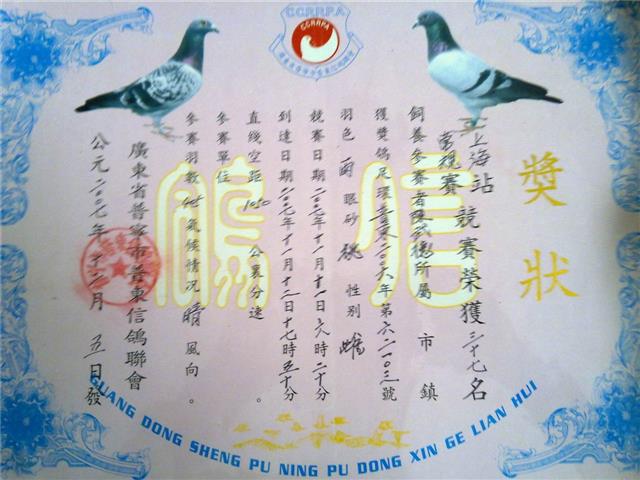 CCRRPA
獎狀
信鴿
上海站
常規賽
競賽榮獲三十七名
飼養參賽者陳武德所屬 市 鎮
獲獎鴿足環 二〇〇六年第六二一〇三號
羽色 雨 眼砂 桃 性別
競賽日期二〇〇七年十一月十一日六時二十分
到達日期二〇〇七年十一月十二日十七時五十分
直綫空距 1050 公裏分速 。
參賽單位
參賽羽數 405 氣候情况 晴 風向 。
廣東省普寧市普東信鴿聯會
公元二〇〇七年十二月五日發
GUANG DONG SHENG PU NING PU DONG XIN GE LIAN HUI